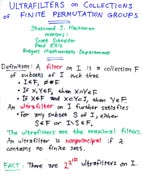 ULTRAFILTERS on COLLECTIONS
of FINITE PERMUTATION GROUPS
Mentors:
Simon Thomas
Paul Ellis
Rutgers Mathematics Department
Definitions: A filter on I is a collection F
of subsets of I such that
• I∈F, ∅∉F
• If X,Y∈F, then X∩Y∈F
• If X∈F and X⊂Y⊂I, then Y∈F
An ultrafilter on I further satisfies
• For any subset S of I, either
S∈F or I\S∈F.
The ultrafilters are the maximal filters.
An ultrafilter is nonprincipal if it
contains no finite sets.
FACT: There are ultrafilters on I.